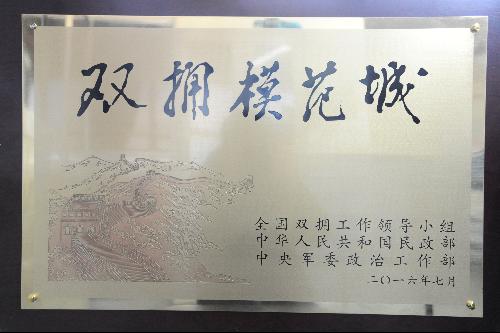 双拥模范城
全国双拥工作领导小组
中华人民共和国民政部
中央军委政治工作部
二〇一六年七月